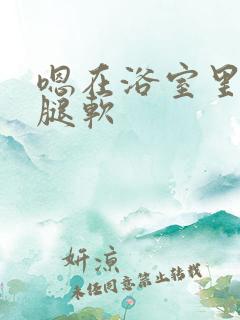 嗯在浴室里
腿软
妍凉
未经同意禁止转载